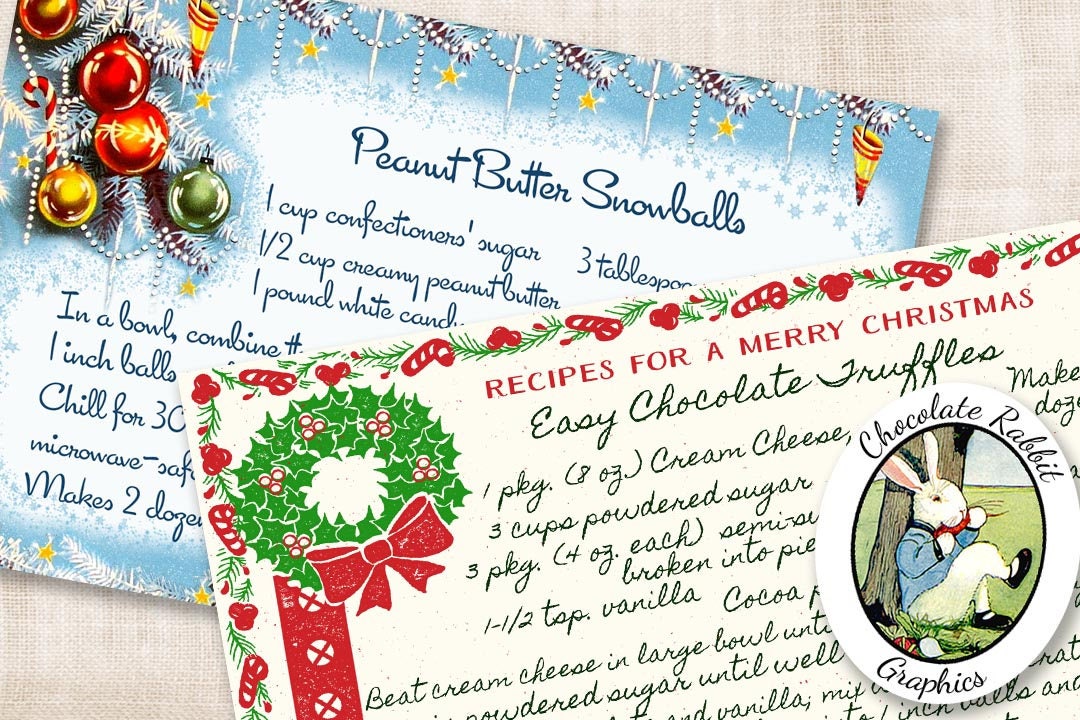 Peanut Butter Snowballs
1 cup confectioners' sugar
3 tablespoo
1/2 cup creamy peanut butter
1 pound white candy
In a bowl, combine th
1 inch balls
Chill for 30
microwave-safe
Makes 2 dozen
RECIPES FOR A MERRY CHRISTMAS
Easy Chocolate Truffles
Make
doze
1 pkg. (8 oz.) Cream Cheese,
3 cups powdered sugar
3 pkg. (4 oz. each) semi-su
broken into pie
1-1/2 tsp. vanilla Cocoa p
Beat cream cheese in large bowl unti
powdered sugar until well
and vanilla; mix
to 1 inch balls and
Chocolate Rabbit
Graphics